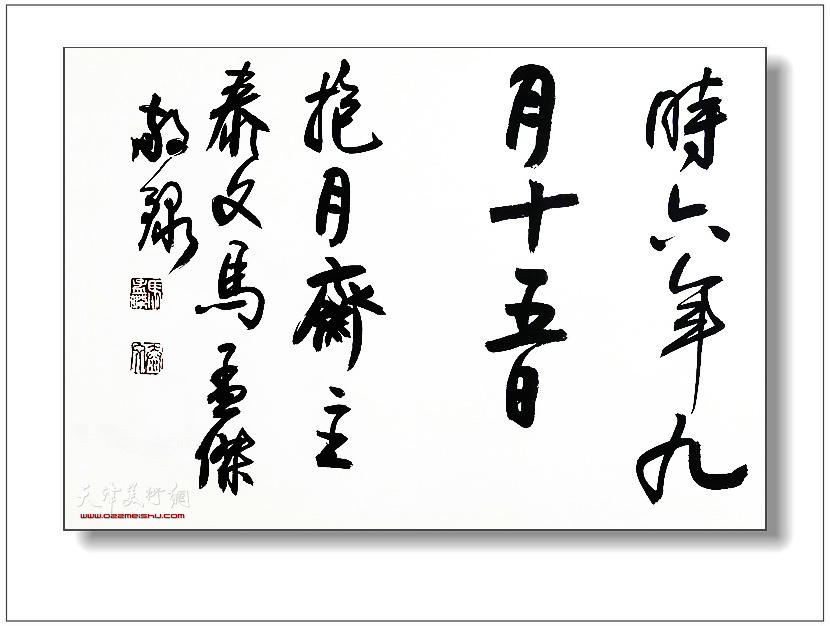 時六年九
月十五日
抱月齋主
泰文馬孟傑
敬录
天津美術網
www.022meishu.com